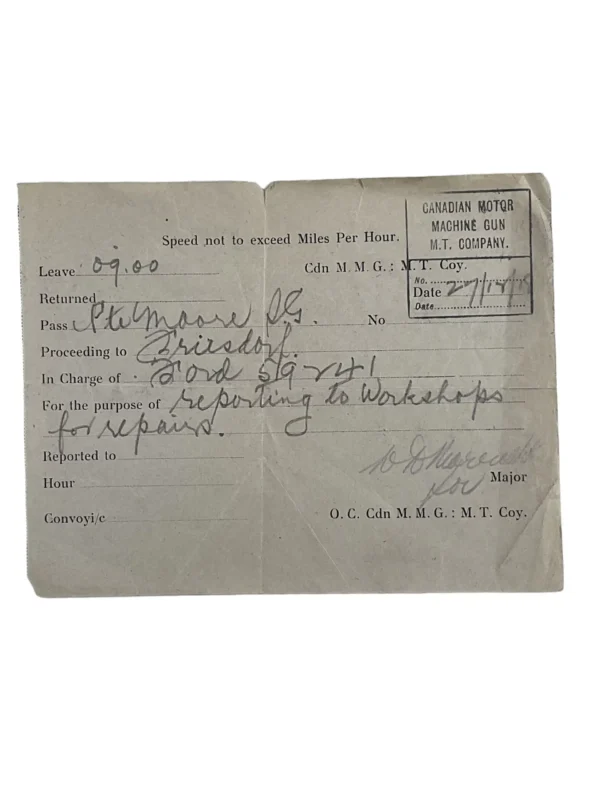 CANADIAN MOTOR
MACHINE GUN
M.T. COMPANY.
Speed not to exceed Miles Per Hour.
Leave 09.00 Cdn M. M. G. : M. T. Coy.
No.
Returned Date 27/12/18
Date
Pass Pte Moore S.G. No
Proceeding to Friesdorf.
In Charge of Ford 59241
For the purpose of reporting to Workshops
for repairs.
Reported to
Hour Major
for
Convoy i/c O. C. Cdn M. M. G. : M. T. Coy.